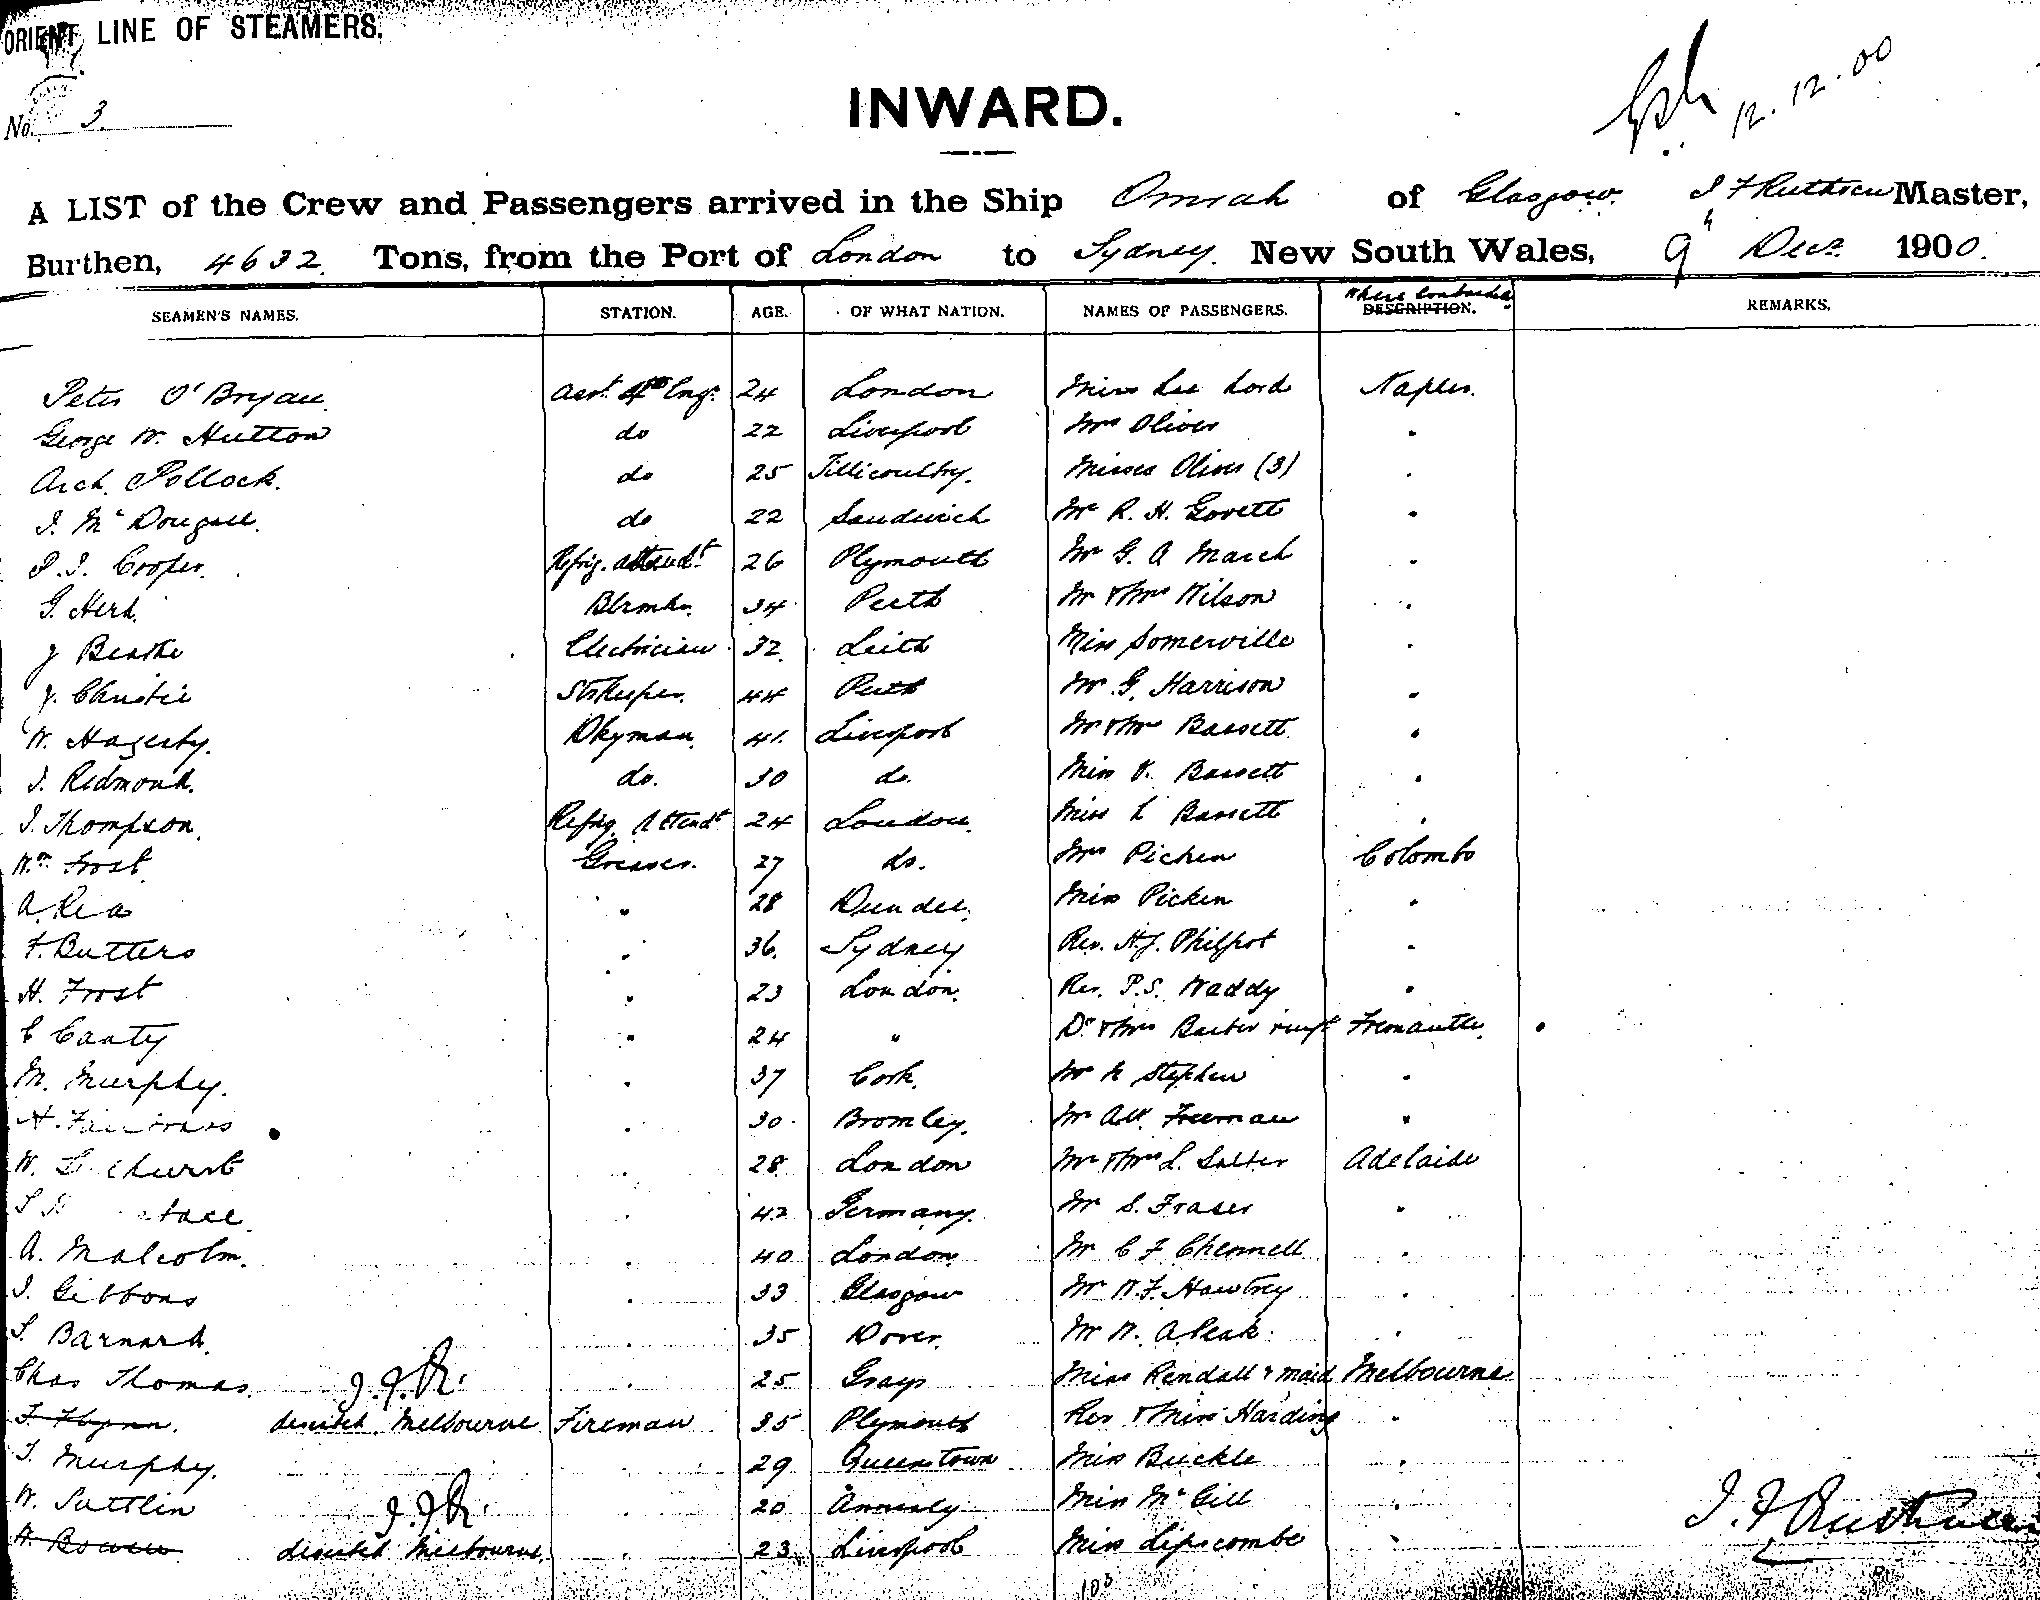 ORIENT LINE OF STEAMERS.
No. 3.
INWARD.
12.12.00
A LIST of the Crew and Passengers arrived in the Ship Omrah of Glasgow. Master,
Burthen, 4632 Tons, from the Port of London to Sydney. New South Wales, 9" Decr. 1900.
SEAMEN'S NAMES. STATION. AGE. OF WHAT NATION. NAMES OF PASSENGERS. Where Embarked DESCRIPTION. REMARKS.
Peter O'Bryan. Asst. 4th Engr. 24 London Miss Lee Lord Naples.
George W. Hutton do 22 Liverpool Mrs Oliver "
Arch. Pollock. do 25 Tillicoultry. Misses Oliver (3) "
J. McDougall. do 22 Sandwich Mr R. H. Govett "
Cooper. Refrig. attendt. 26 Plymouth Mr G. A March "
G. Herd. Blrmkr. 34 Perth Mr & Mrs Wilson "
J Electrician 32. Leith Miss Somerville "
J. Christie Storkeeper. 44 Perth Mr G. Harrison "
W. Hagerty. Dkyman. 41. Liverpool Mr & Mrs Bassett "
J. Redmond. do. 30 do. Miss V. Bassett "
J. Thompson. Refrig. Attendt 24 London. Miss L Bassett "
Wm. Frost. Greaser. 27 do. Mrs Picken Colombo
A. Rea " 28 Dundee. Miss Picken "
F. Butters " 36. Sydney Rev. H.J. Philpot "
H. Frost " 23 London. Rev. P.S. Waddy "
C Canty " 24 " Dr & Mrs Fremantle.
M. Murphy. " 37 Cork. Mr Stephen "
H. " 30 Bromley. Mr Freeman "
W. " 28 London Mr & Mrs L. Salter Adelaide
" 42 Germany. Mr S. Fraser "
A. Malcolm. " 40 London. Mr C F Chennell "
J. Gibbons " 33 Glasgow Mr Hawtrey "
S. Barnard. " 35 Dover. Mr W. A. Peak. "
Chas Thomas. J.F.R. " 25 Grays Miss Rendall & maid Melbourne
F. Flynn. deserted Melbourne Fireman 35 Plymouth Rev & Miss Harding "
T. Murphy. " 29 Queenstown Miss Buckle "
W. Suttlin J.F.R. " 20 Miss McGill "
H. Bowen deserted Melbourne " 23 Liverpool Miss Lipscombe "
103